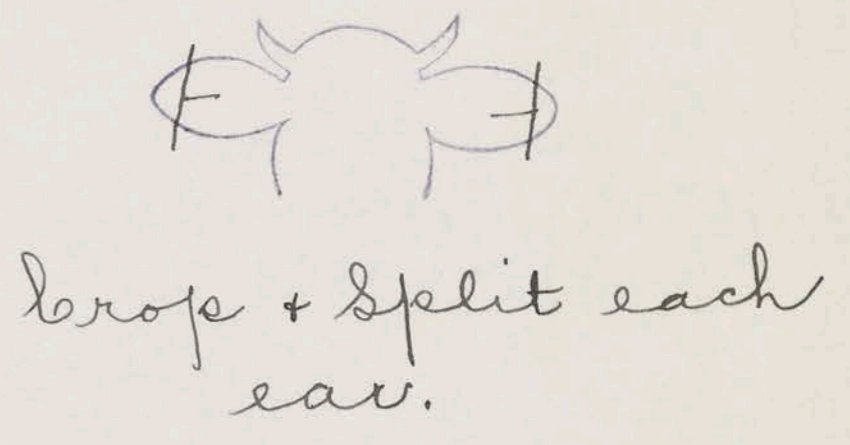 Crop + Split each
ear.